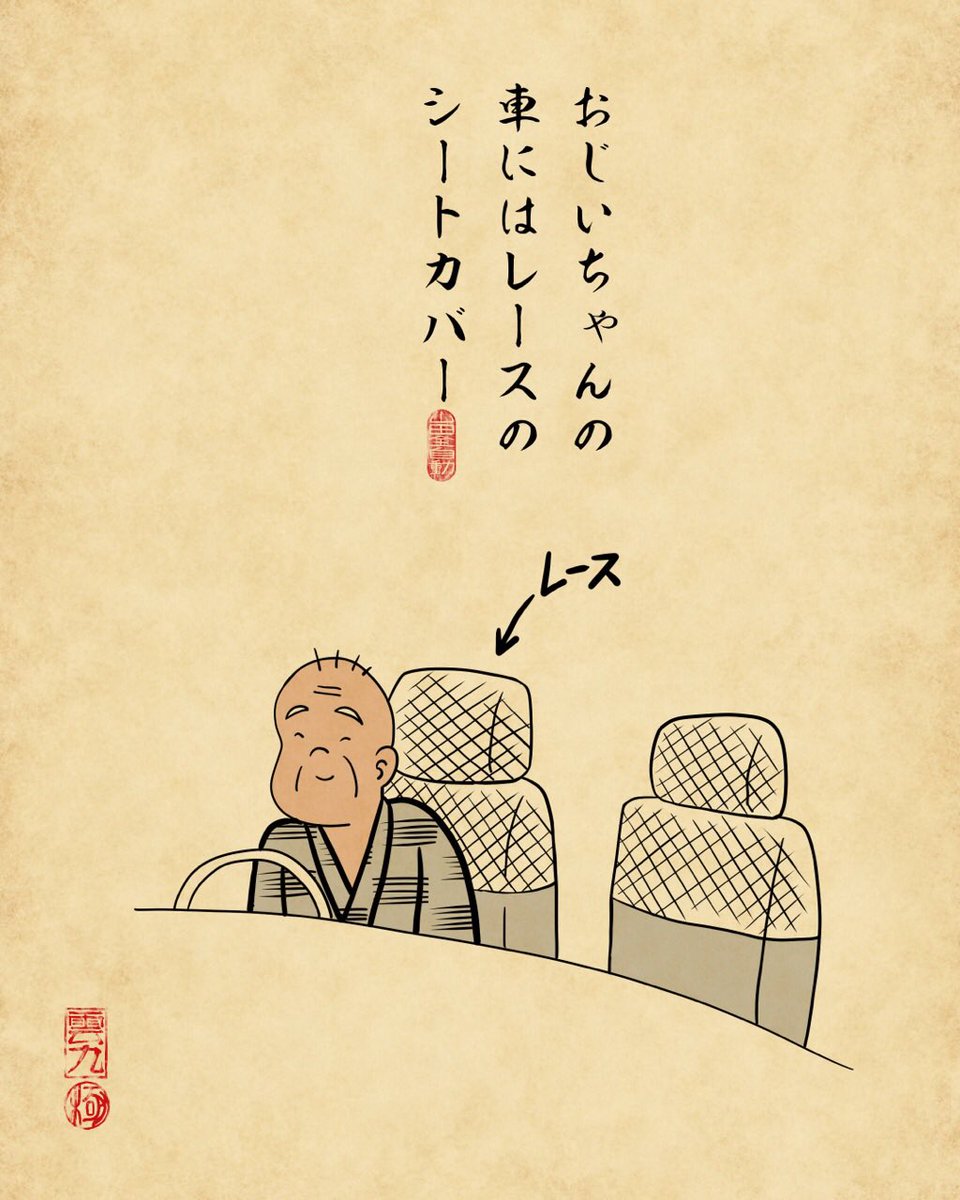 おじいちゃんの
車にはレースの
シートカバー
レース